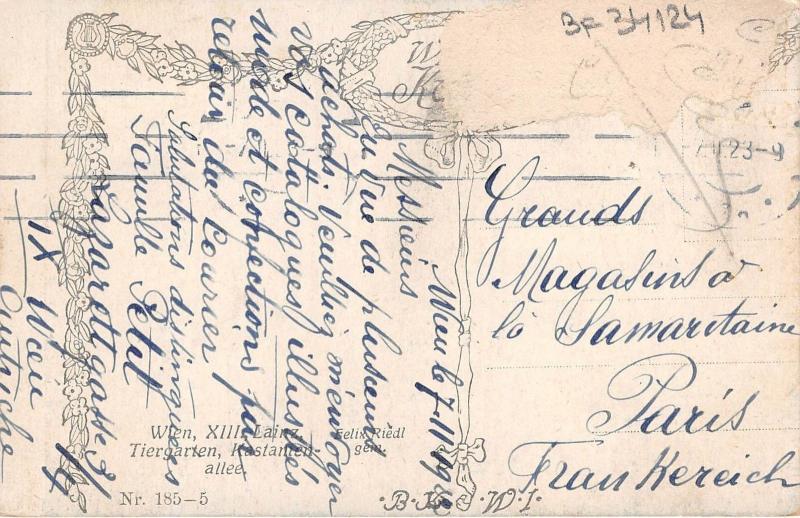 B= 34124
W
K
7.II.23-9
Wien le 7-II 19
Messieurs
En vue de plusieurs
achats. veuillez m'envoyer
vos cattalogues illustrés
mode et confections par
retour du courier
Salutations distinguées
Famille Petit
Lazarettgasse
IX Wien
Autriche
Grands
Magasins à
la Samaritaine
Paris
Frankereich
Wien, XIII. Lainz,
Tiergarten, Kastanien-
allee.
Felix Riedl
gem.
Nr. 185-5
B.K.W.I.